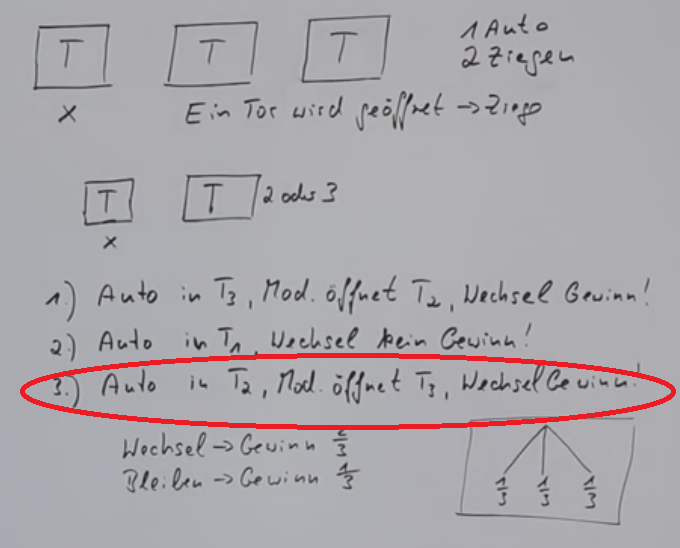 T T T 1 Auto
2 Ziegen
x Ein Tor wird geöffnet → Ziege
T T 2 oder 3
x
1.) Auto in T3, Mod. öffnet T2, Wechsel Gewinn!
2.) Auto in T1, Wechsel kein Gewinn!
3.) Auto in T2, Mod. öffnet T3, Wechsel Gewinn!
Wechsel → Gewinn 2/3
Bleiben → Gewinn 1/3
1/3 1/3 1/3